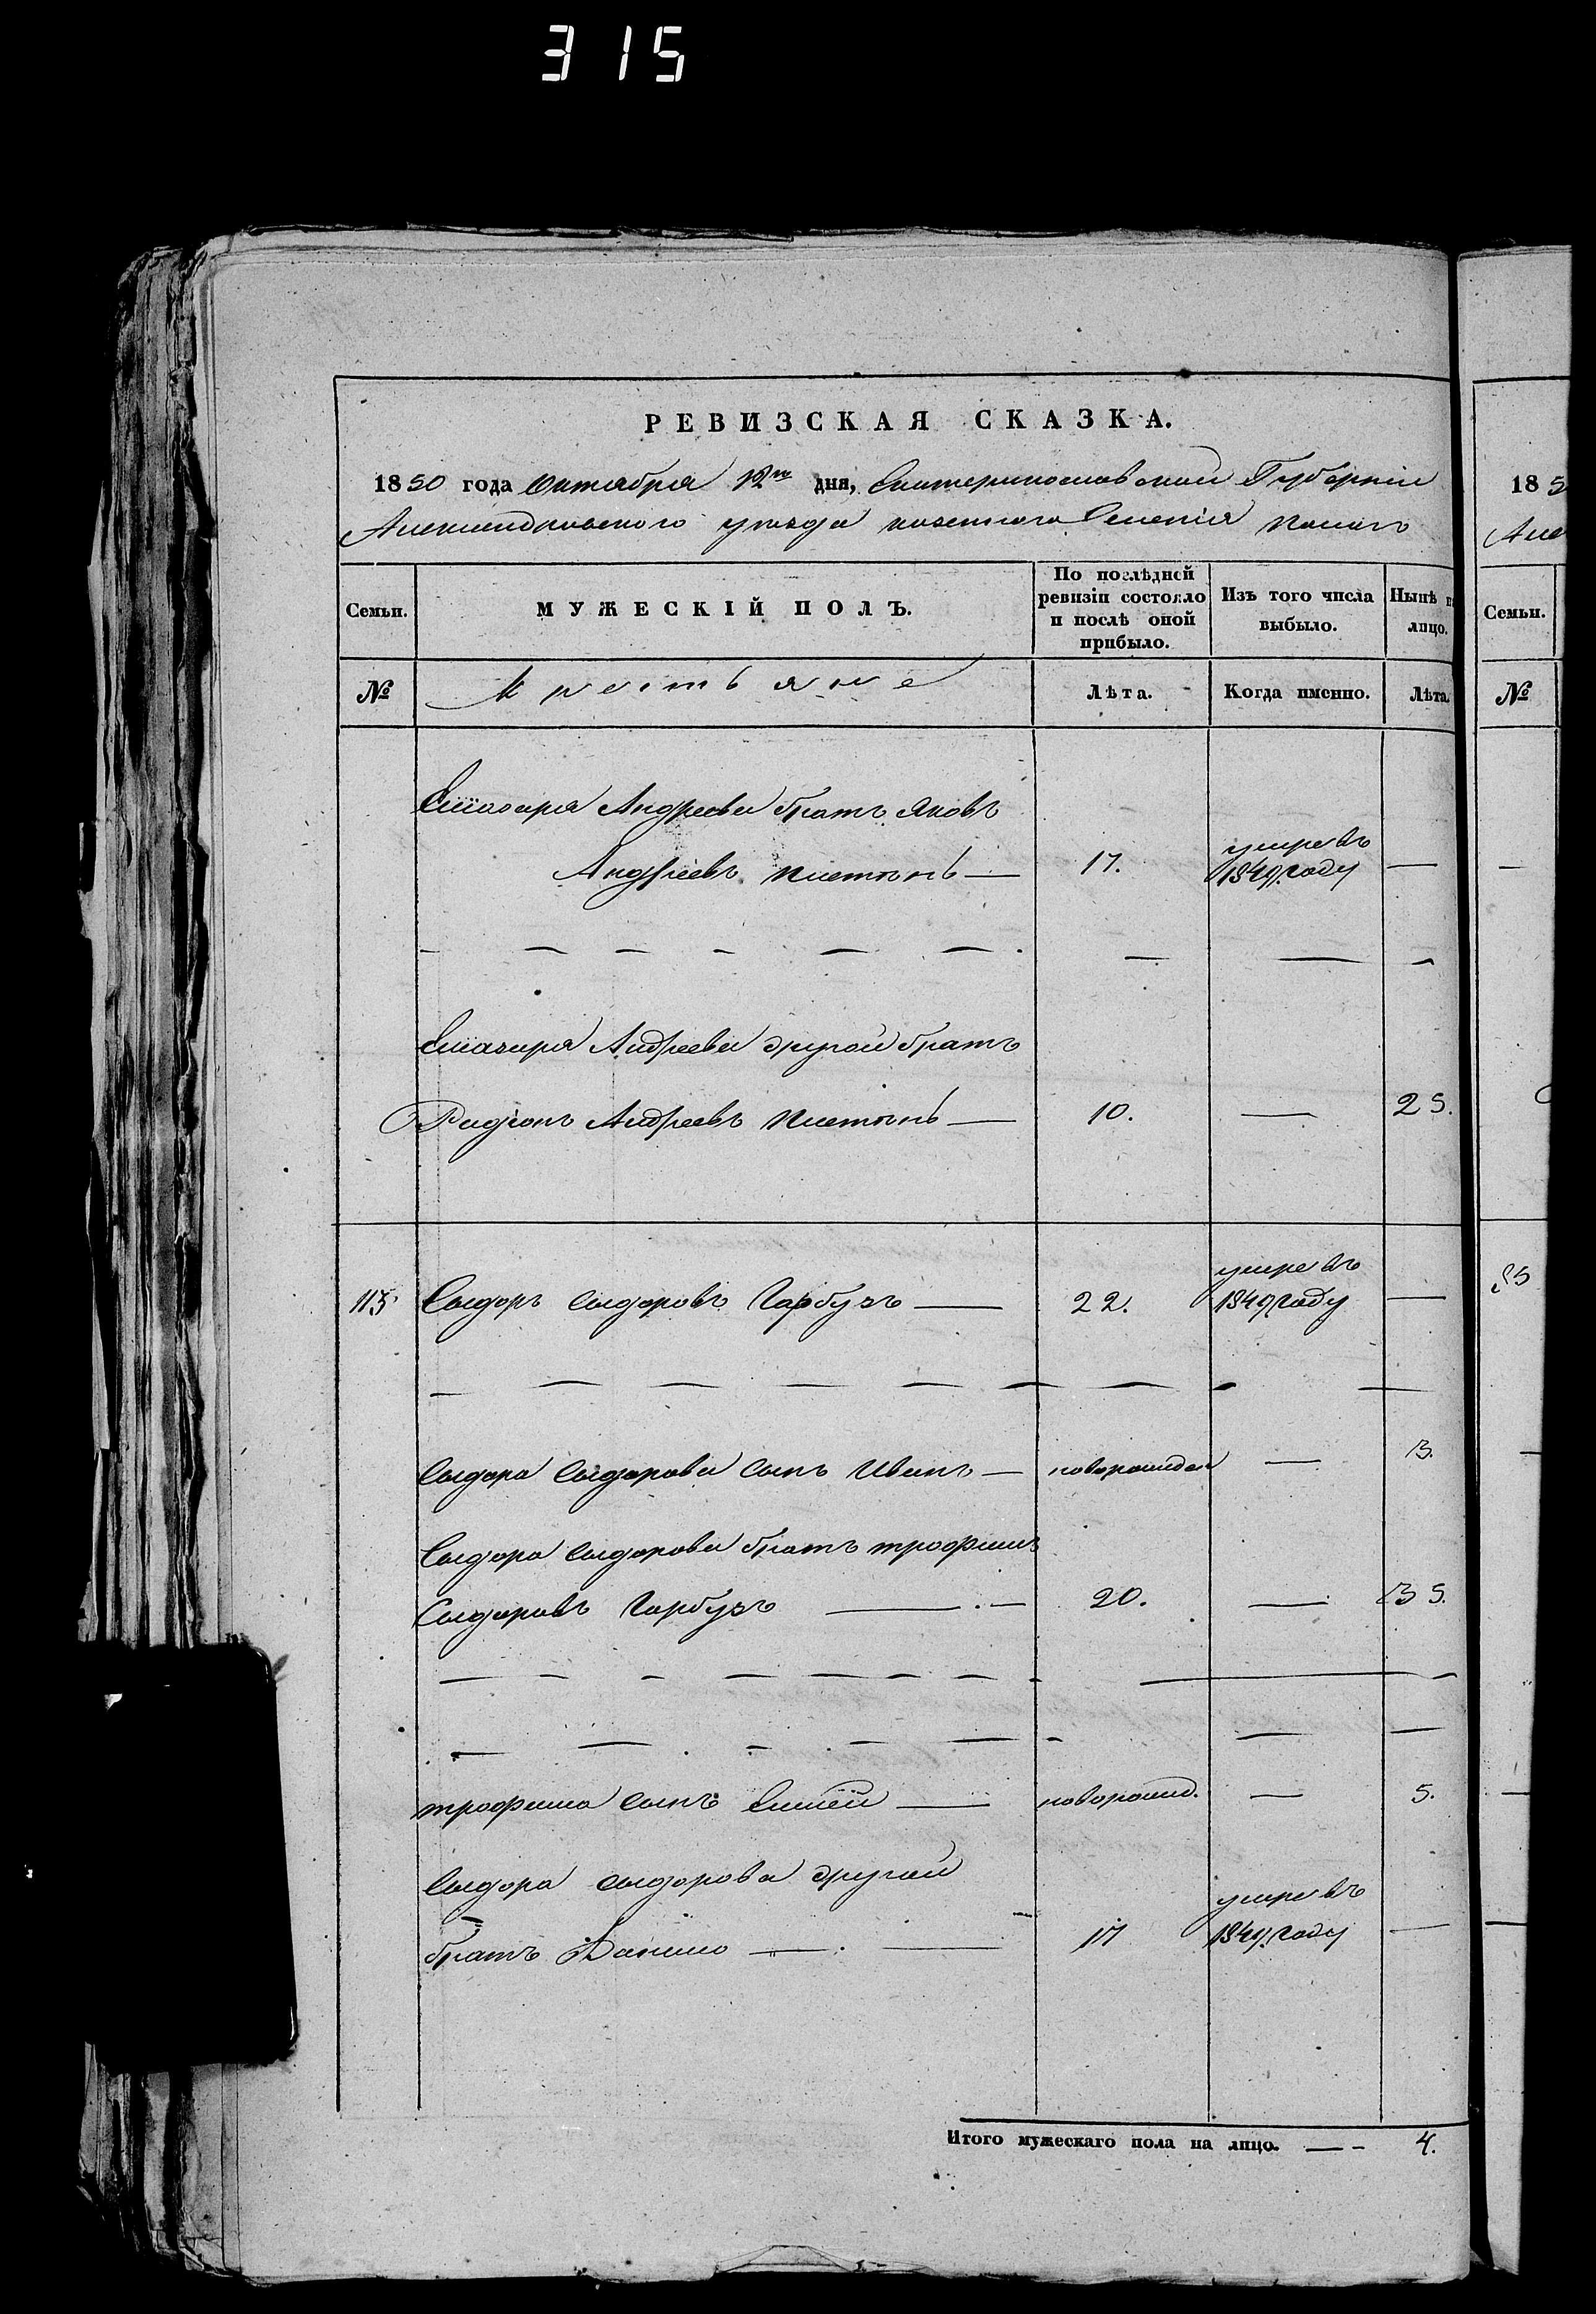 315
РЕВИЗСКАЯ СКАЗКА.
1850 года Октября 12го дня, Екатеринославской Губернiи
Александровского уезда казенного Селенiя
Семьи.
МУЖЕСКІЙ ПОЛЪ.
По послѣдней ревизіи состояло и послѣ оной прибыло.
Изъ того числа выбыло.
Нынѣ на лицо.
№
Крестьяне
Лѣта.
Когда именно.
Лѣта
Андреева братъ Яковъ
Андреевъ 17. умре въ 1849 году —
Андреева другой братъ
Радiонъ Андреевъ 10. — 25.
115 Сыдоръ Сыдоровъ Гарбузъ — 22. умре въ 1849 году —
Сыдора Сыдорова сынъ Иванъ — новорожден — 3.
Сыдора Сыдорова братъ трофимъ
Сыдоровъ Гарбузъ — 20. — 35.
трофима сынъ — новорожд. — 5.
Сыдора Сыдорова другой
братъ Данило — 17 умре въ 1849 году —
Итого мужескаго пола на лицо. — 4.
185
Але
Семьи.
№